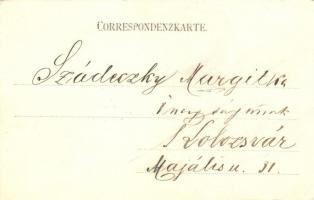 CORRESPONDENZKARTE.
Szádeczky Margitka
Kolozsvár
Majális u. 31.